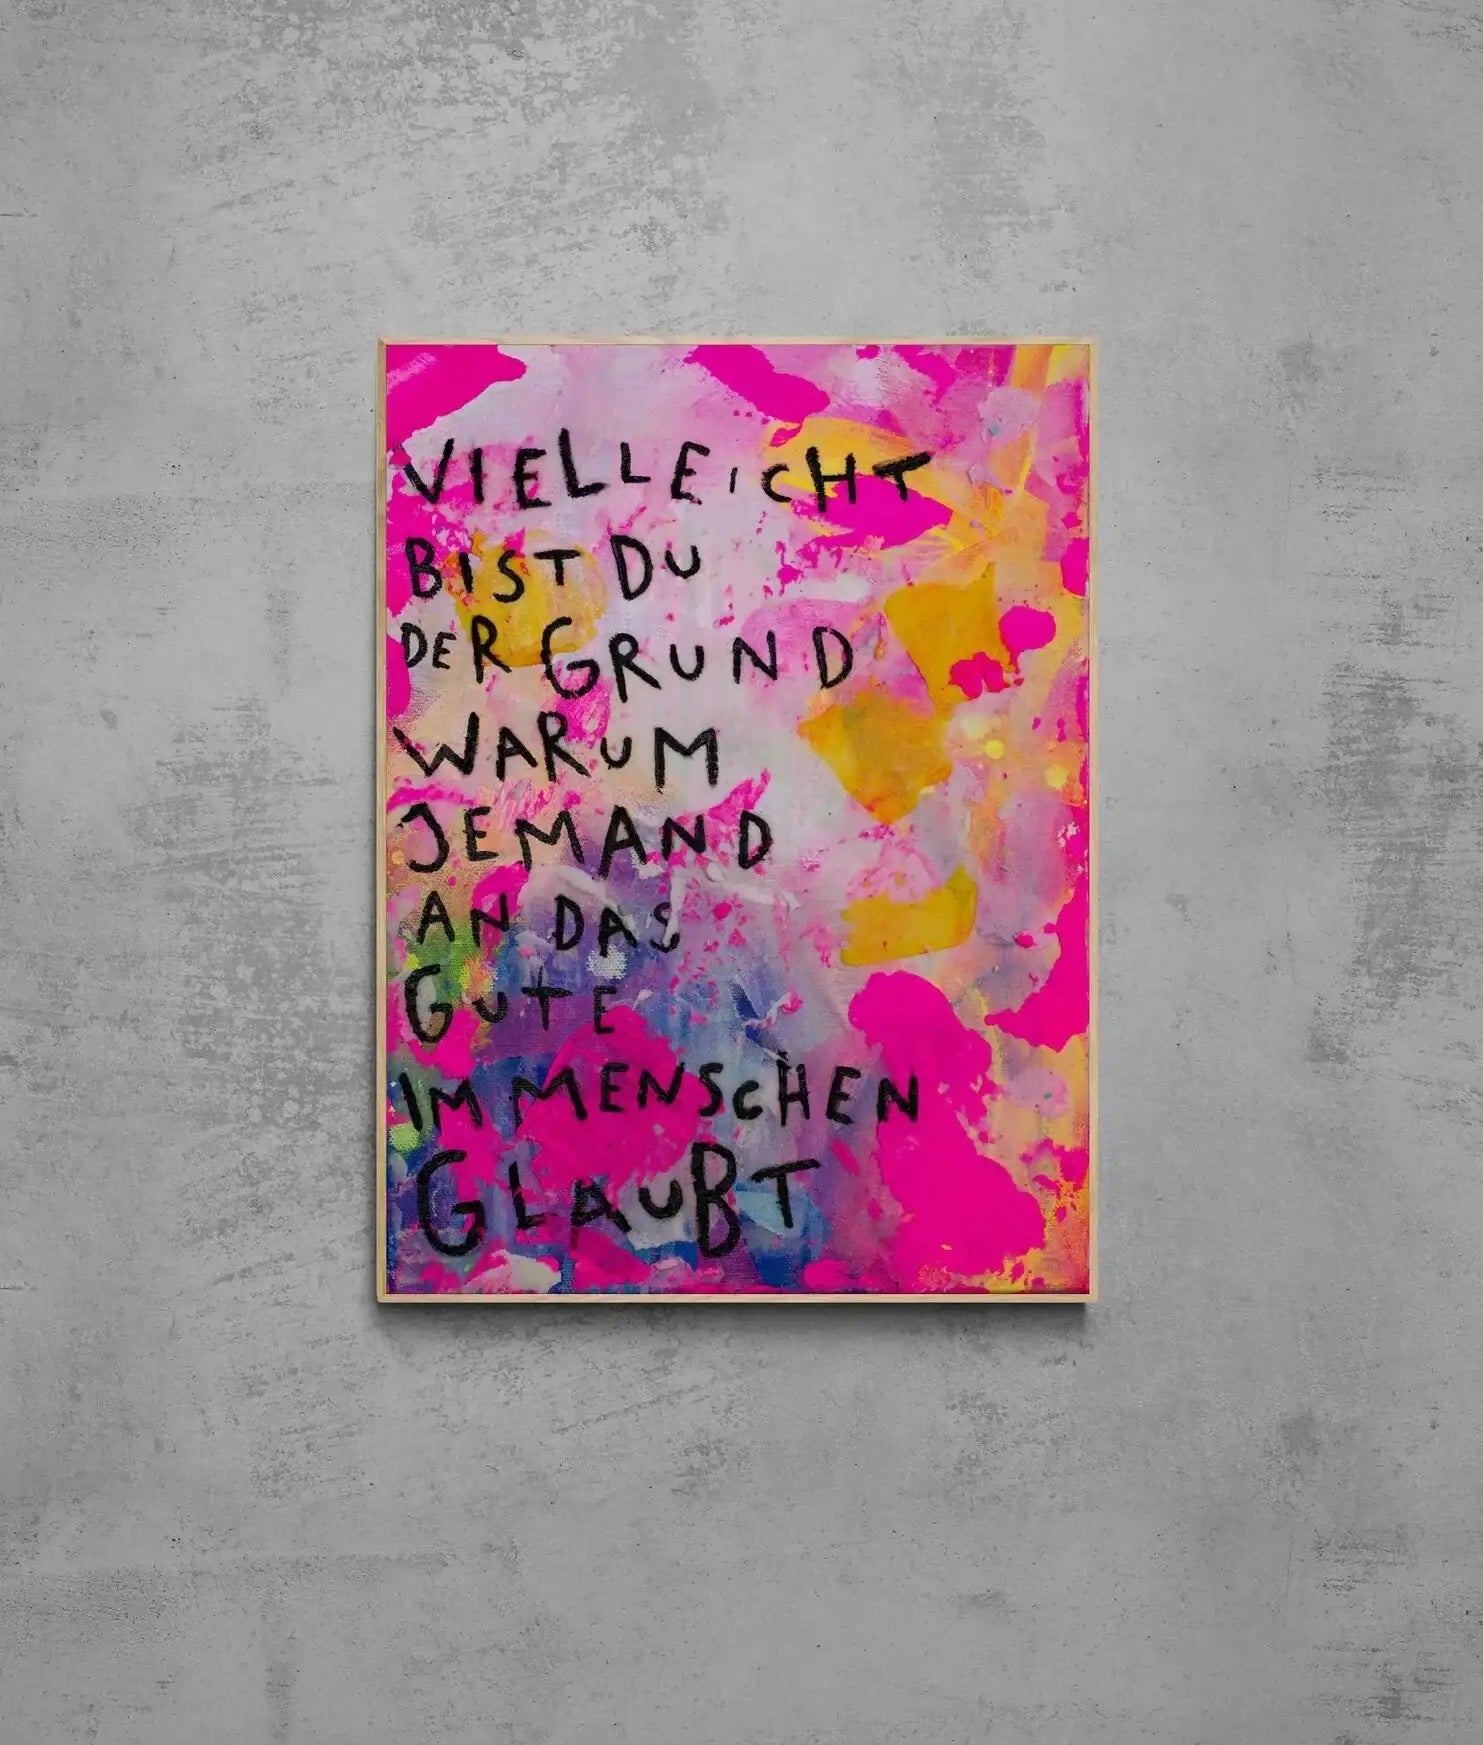 VIELLEICHT
BIST DU
DER GRUND
WARUM
JEMAND
AN DAS
GUTE
IM MENSCHEN
GLAUBT